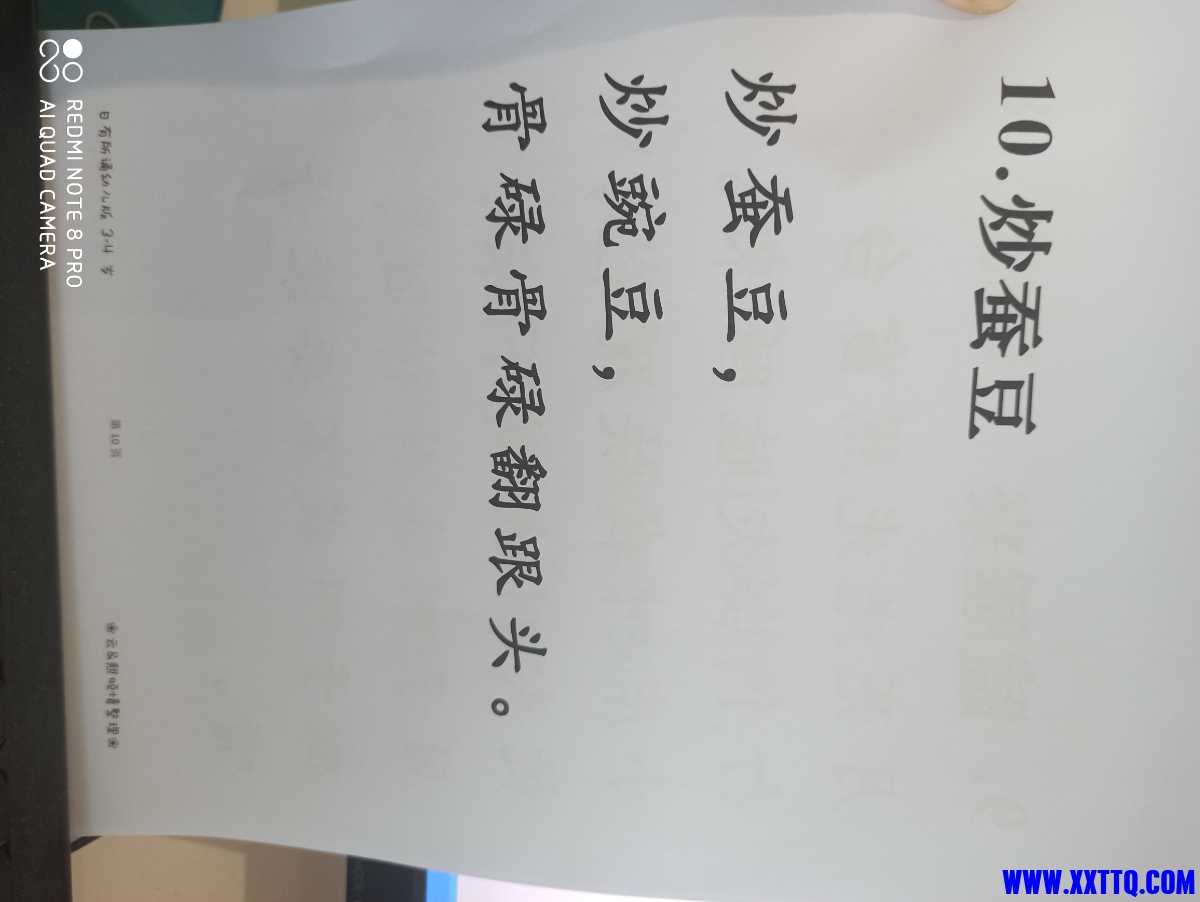 10.炒蚕豆
炒蚕豆，
炒豌豆，
骨碌骨碌翻跟头。
日有所诵幼儿版 3-4 岁
第 10 页
REDMI NOTE 8 PRO
AI QUAD CAMERA
WWW.XXTTQ.COM